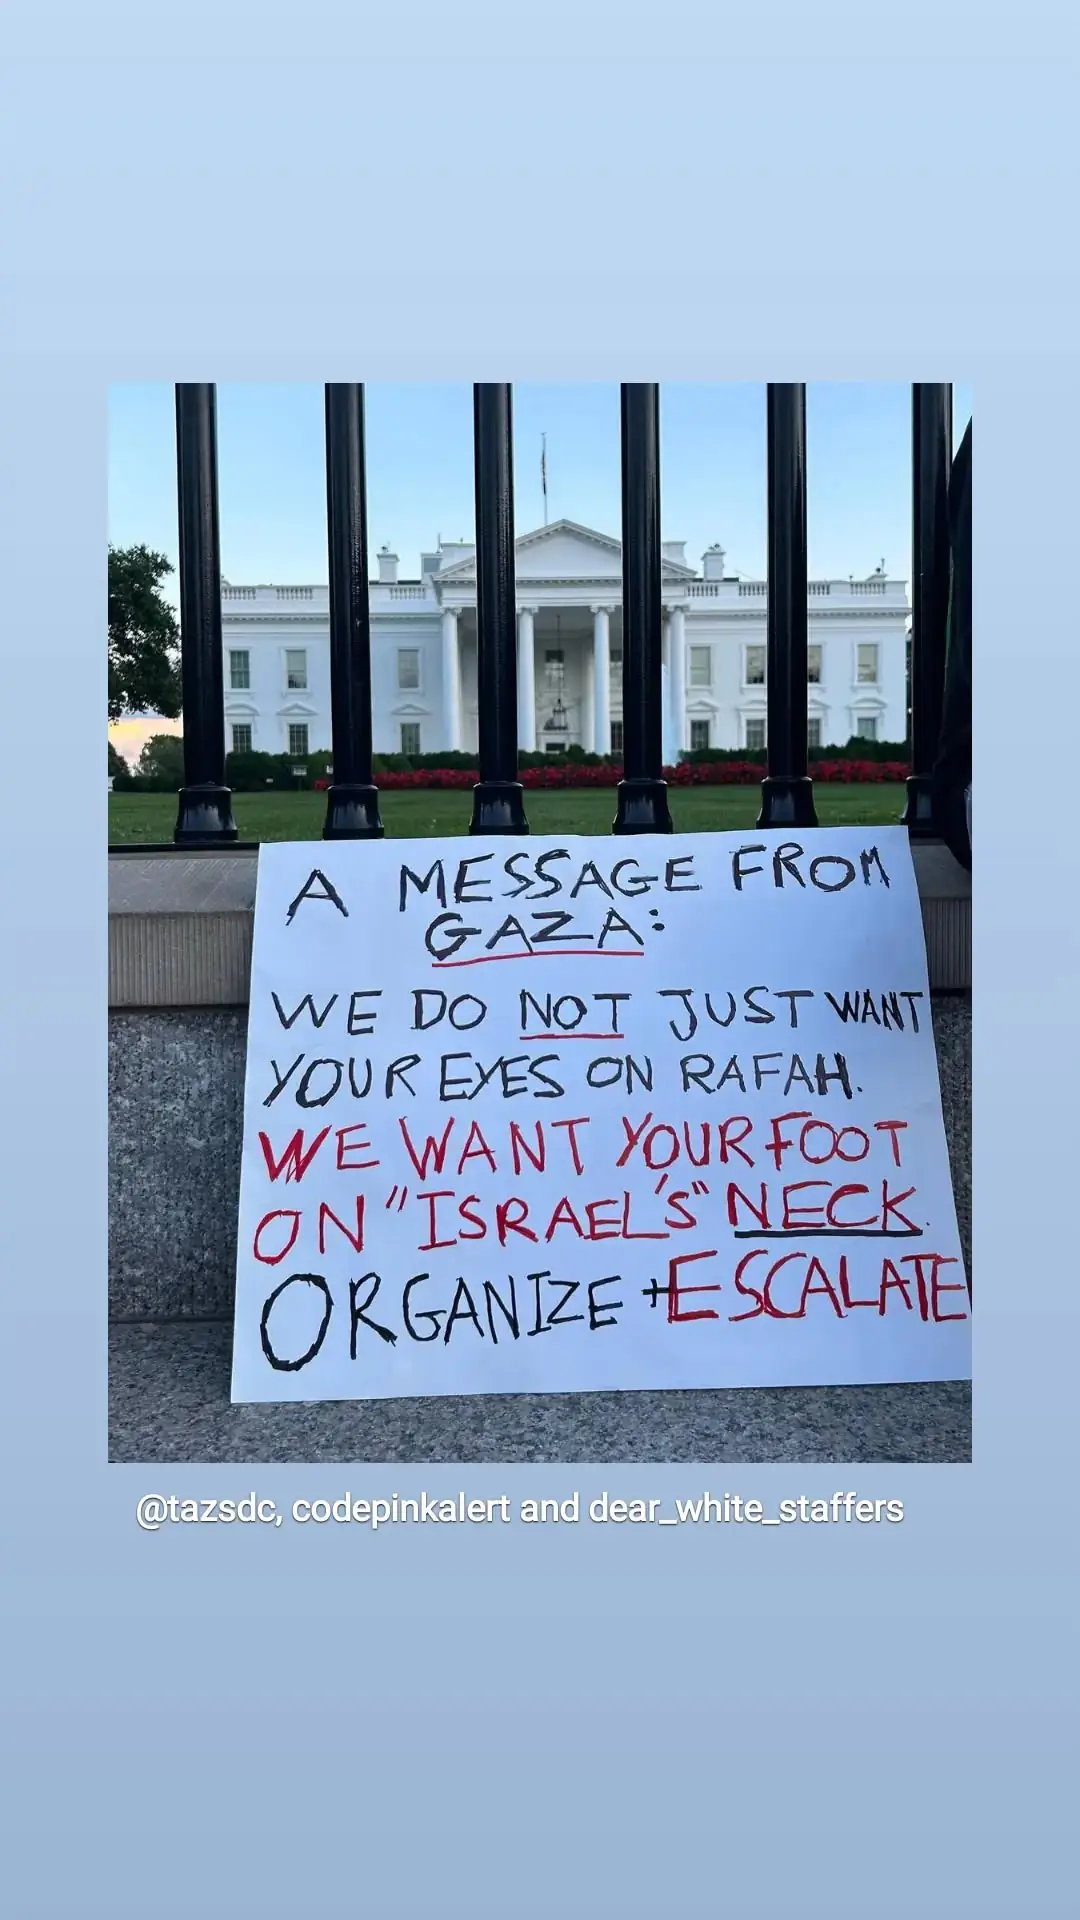 A MESSAGE FROM
GAZA:
WE DO NOT JUST WANT
YOUR EYES ON RAFAH.
WE WANT YOUR FOOT
ON "ISRAEL'S" NECK.
ORGANIZE + ESCALATE
@tazsdc, codepinkalert and dear_white_staffers